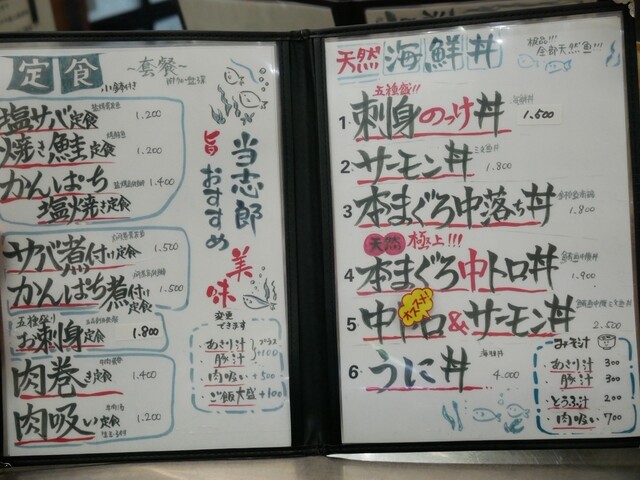 定食
~套餐~
小鉢付き
塩サバ定食 1.200
焼き鮭定食 1.200
かんぱち 1.400
塩焼き定食
サバ煮付け定食 1.500
かんぱち煮付け定食 1.500
五種盛り
お刺身定食 1.800
肉巻き定食 1.400
肉吸い定食 1.200
当志郎
おすすめ
旨
美味
変更
できます
あさり汁
豚汁
プラス
+100
肉吸い +500
ご飯大盛 +100
天然海鮮丼
極品!!!
全部天然魚!!!
五種盛!!
1. 刺身のっけ丼 海鮮丼 1.500
2. サーモン丼 1.800
3 本まぐろ中落ち丼 1.800
天然 極上!!!
4 本まぐろ中トロ丼 1.900
オススメ!
5 中トロ&サーモン丼 2.500
6 うに丼 海胆丼 4.000
みそ汁
あさり汁 300
豚汁 300
とうふ汁 200
肉吸い 700